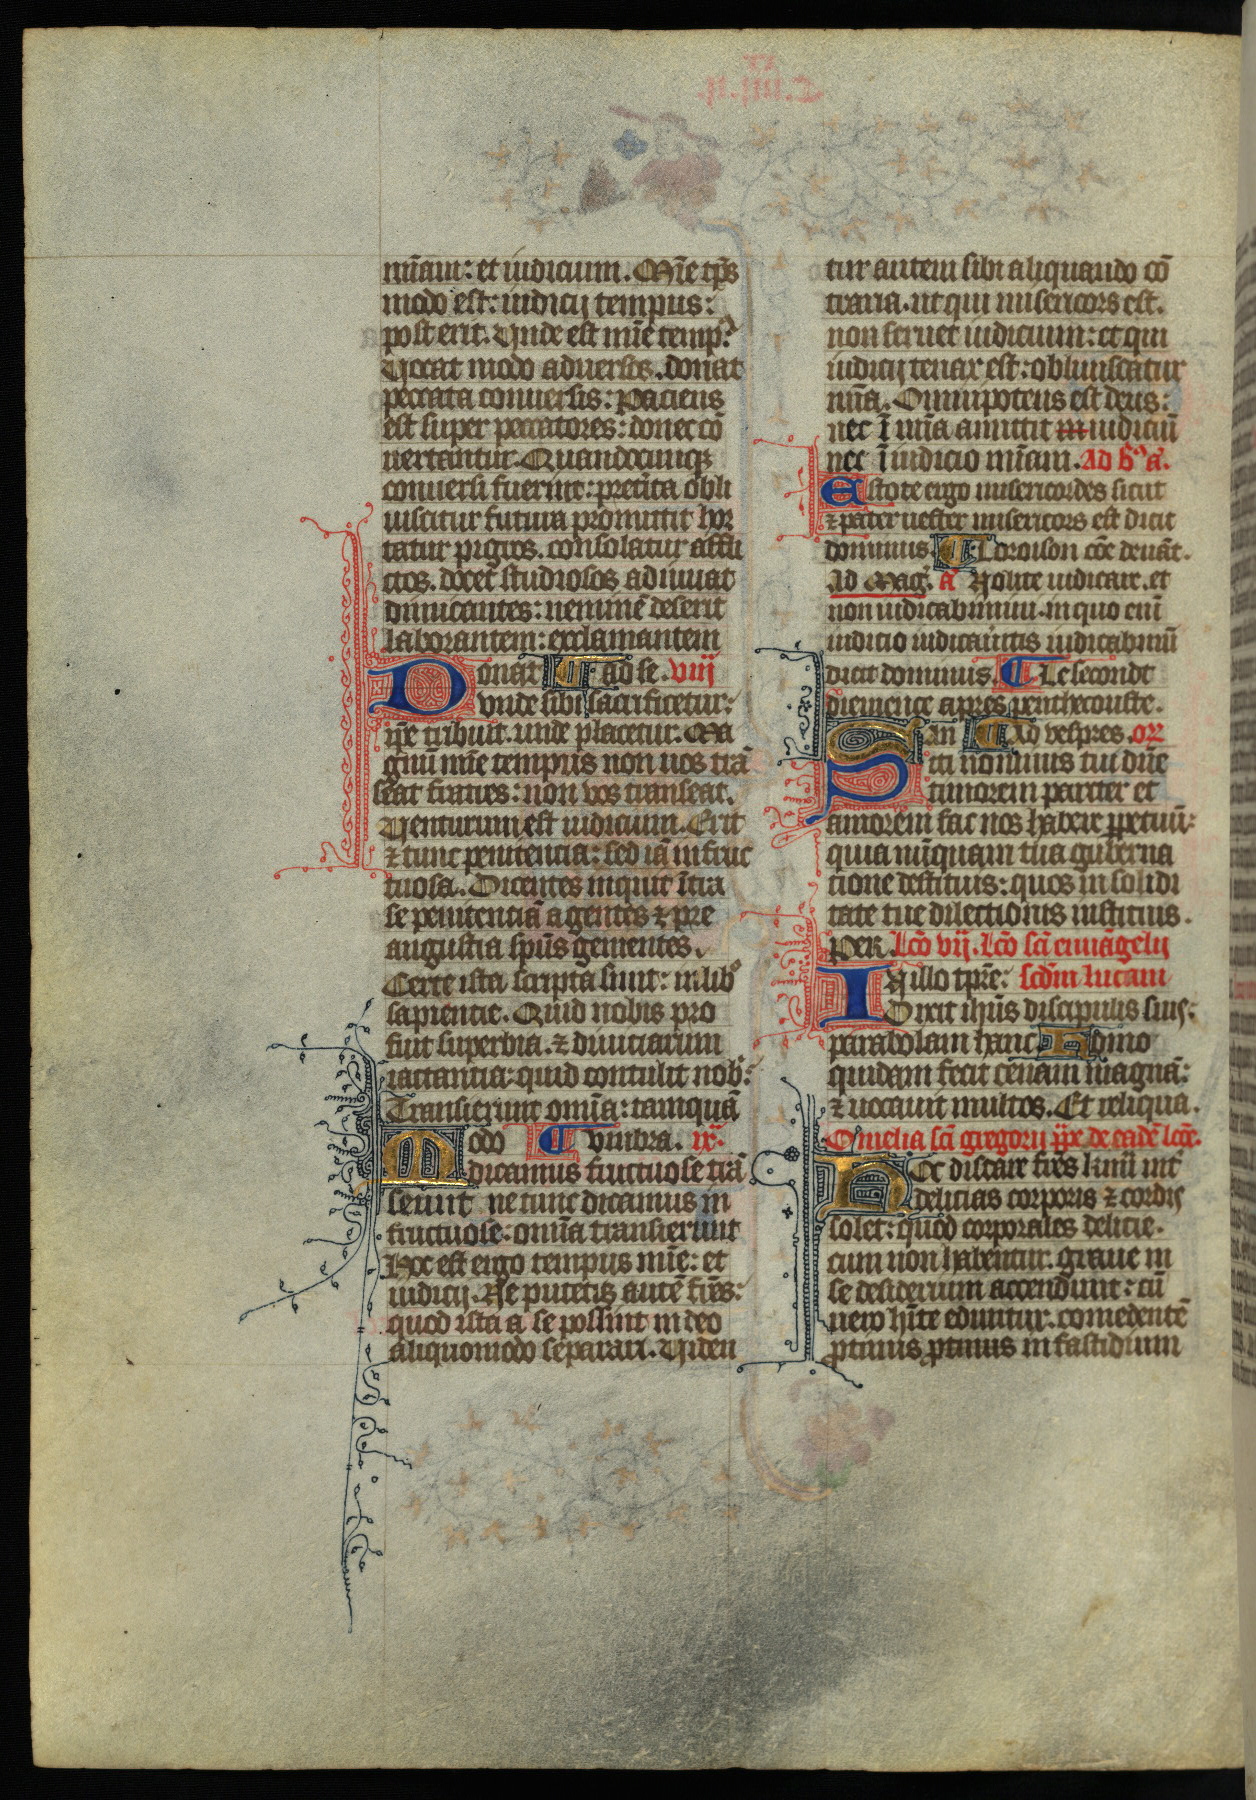 mīam: et iudicium. Mīe tp̄s
modo est: iudicij tempus:
post erit. Unde est mīe temp?
Uocat modo aduersos. donat
peccata conuersis: Paciens
est super peccatores: donec cō
uertantur. Quandocumqꝫ
conuersi fuerint: preterita obli
uiscitur futura promittit hor
tatur pigros. consolatur affli
ctos. docet studiosos adiuuat
dimicantes: neminē deserit
laborantem: exclamantem
Donat ¶ ad se. viij
unde sibi sacrificetur:
ip̄e tribuit. unde placetur. Ma
gnū mīe tempus non uos trā
seat fratres: non vos transeat.
Uenturum est iudicium. Erit
⁊ tunc penitencia: sed iā infruc
tuosa. Dicentes inquit ītra
se penitenciā agentes ⁊ pre
angustia sp̄us gementes.
Certe ista scripta sunt: in libº
sapientie. Quid nobis pro
fuit superbia. ⁊ diuiciarum
iactantia: quid contulit nob:
Transierunt omīa: tamquā
Modo ¶ vmbra. ix.
dicamus fructuose trā
seunt ne tunc dicamus in
fructuose: omīa transierunt
Hoc est ergo tempus mīe: et
iudicij. Ne putetis autē frēs:
quod ista a se possint in deo
aliquomodo separari. Uiden
tur autem sibi aliquando cō
traria. ut qui misericors est.
non seruet iudicium: et qui
iudicij tenax est: obliuiscatur
mīa. Omnipotens est deus:
nec ī mīa amittit m iudiciū
nec ī iudicio mīam. Ad b̄º a.
Estote ergo misericordes sicut
⁊ pater uester misericors est dicit
dominus. ¶ Loroison cōe deuāt.
Ad Mag. a Nolite iudicare. et
non iudicabimini. in quo enī
iudicio iudicaūitis iudicabimī
dicit dominus. ¶ Le secondt
diemence apres penthecouste.
San ¶ Ad vespres. or
Scti nominis tui dn̄e
timorem pariter et
amorem fac nos habere ꝑpetuū:
quia nūquam tua guberna
tione destituis: quos in solidi
tate tue dilectionis instituis.
Per. Lcō vij. Lcō scī euuāgelij
In illo tpr̄e: scd̄m lucam
Dixit ih̄us discipulis suis:
parabolam hanc. Homo
quidam fecit cenam magnā:
⁊ uocauit multos. Et reliqua.
Omelia scī gregorij pp̄e de eadē lcōe.
Hoc distare frēs kmī int̄
delicias corporis ⁊ cordis
solet: quod corporales delicie.
cum non habentur. graue in
se desiderium accendunt: cū
uero hīte eduntur. comedentē
ꝓtinus ꝓtinus in fastidium